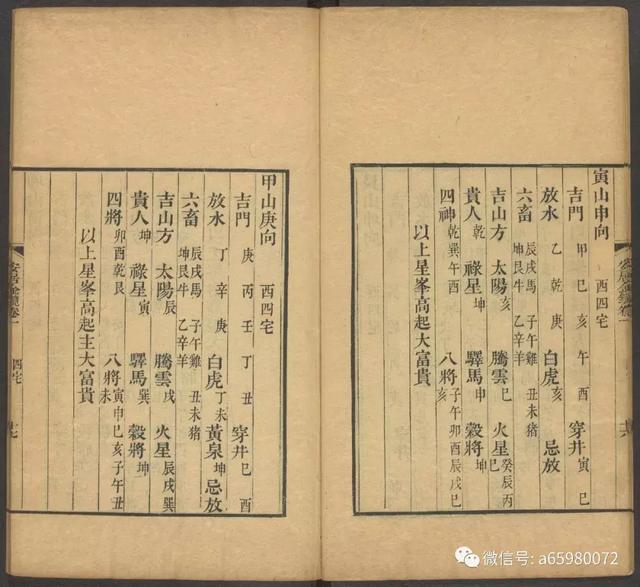 寅山申向 西四宅
吉門 甲巳亥午酉 穿井 寅巳
放水 乙乾庚 白虎 亥 忌放
六畜 辰戌馬 子午雞 丑未猪 坤艮牛 乙辛羊
吉山方 太陽 亥 騰雲 巳 火星 癸辰丙巳
貴人 乾 祿星 坤 驛馬 申 穀將 坤
四神 乾巽午酉 八將 子午卯酉辰戌巳亥
以上星峯高起主大富貴
安居金鏡卷一
甲山庚向 西四宅
吉門 庚丙壬丁丑 穿井 巳酉
放水 丁辛庚 白虎 丁未 黃泉 坤 忌放
六畜 辰戌馬 子午雞 丑未猪 坤艮牛 乙辛羊
吉山方 太陽 辰 騰雲 戌 火星 辰戌巽
貴人 坤 祿星 寅 驛馬 巽 穀將 坤
四將 卯酉乾艮 八將 寅申巳亥子午丑未
以上星峯高起主大富貴
安居金鏡卷一 四宅 十七
微信号: a65980072